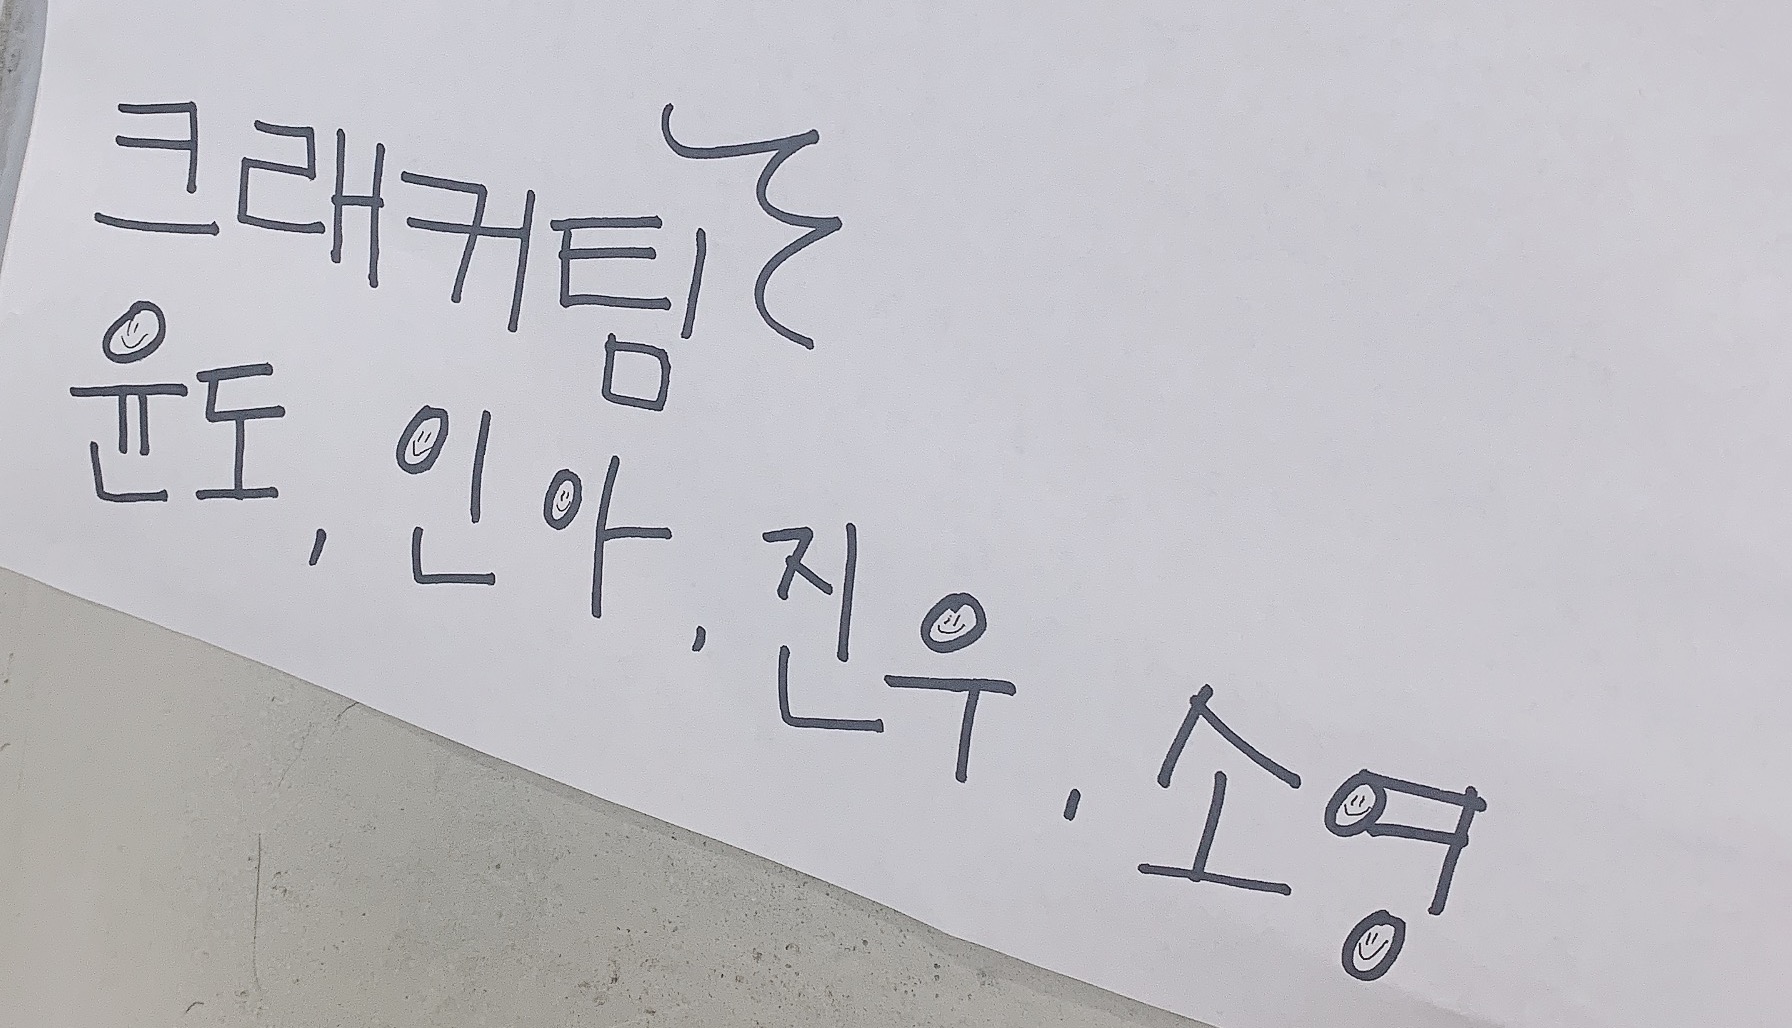 크래커팀
윤도, 인아, 진우, 소영